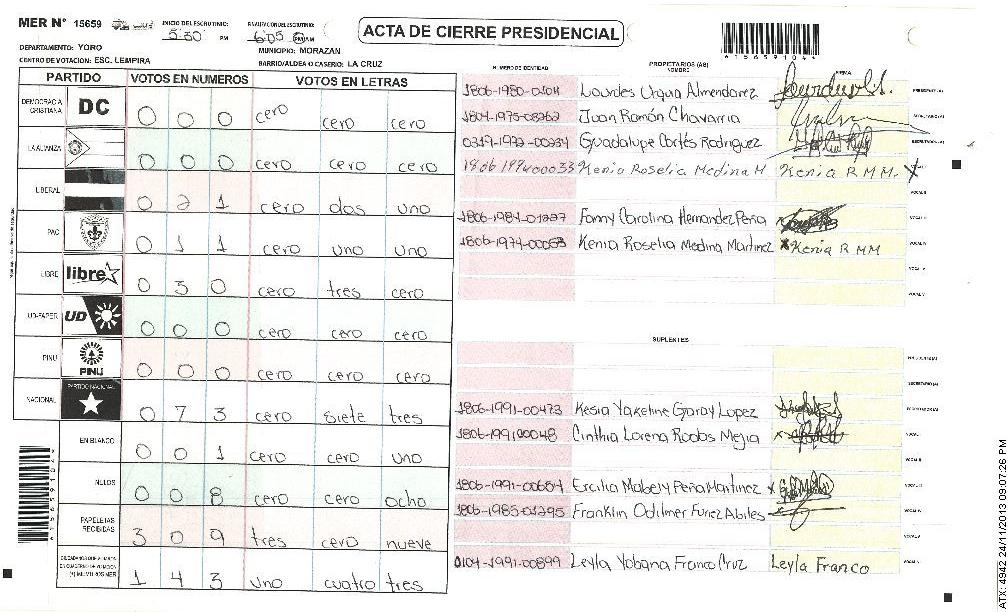 MER N° 15659
INICIO DEL ESCRUTINIO:
5:30 PM
6:05 PM
ACTA DE CIERRE PRESIDENCIAL
DEPARTAMENTO: YORO
MUNICIPIO: MORAZAN
CENTRO DE VOTACION: ESC. LEMPIRA
BARRIO/ALDEA O CASERIO: LA CRUZ
PARTIDO VOTOS EN NUMEROS VOTOS EN LETRAS
DEMOCRACIA CRISTIANA DC 0 0 0 cero cero cero
LA ALIANZA 0 0 0 cero cero cero
LIBERAL 0 2 1 cero dos uno
PAC 0 1 1 cero uno uno
LIBRE libre 0 30 cero tres cero
UD-FAPER UD 0 0 0 cero cero cero
PINU PINU 0 0 0 cero cero cero
NACIONAL PARTIDO NACIONAL 0 7 3 cero siete tres
EN BLANCO 0 0 1 cero cero uno
NULOS 0 0 8 cero cero ocho
PAPELETAS RECIBIDAS 3 0 9 tres cero nueve
1 4 3 uno cuatro tres
NUMERO DE IDENTIDAD PROPIETARIOS (AS) NOMBRE FIRMA
Lourdes Urquia Almendarez
1804-1975-08262 Juan Ramón Chavarria
Guadalupe Cortés Rodriguez
Kenia Roselia Medina M Kenia R M M.
Fanny Carolina Hernandez Peña
Kenia Roselia Medina Martinez Kenia R MM
SUPLENTES
1806-1991-00473 Kesia Yakeline Garay Lopez
1806-199100048 Cinthia Lorena Mejia
Ercilia Mabely Peña Martinez
Franklin Odilmer Funez
0104-1991-00899 Leyla Yobana Franco Cruz Leyla Franco
ATX: 4942 24/11/2013 09:07:26 PM